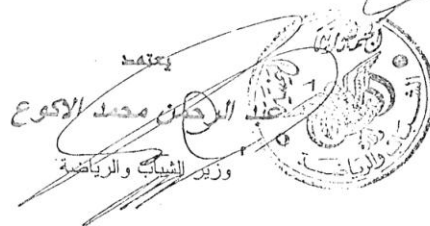 يعتمد
عبد الرحمن محمد الاكوع
وزير الشباب والرياضة
الشباب والرياضة